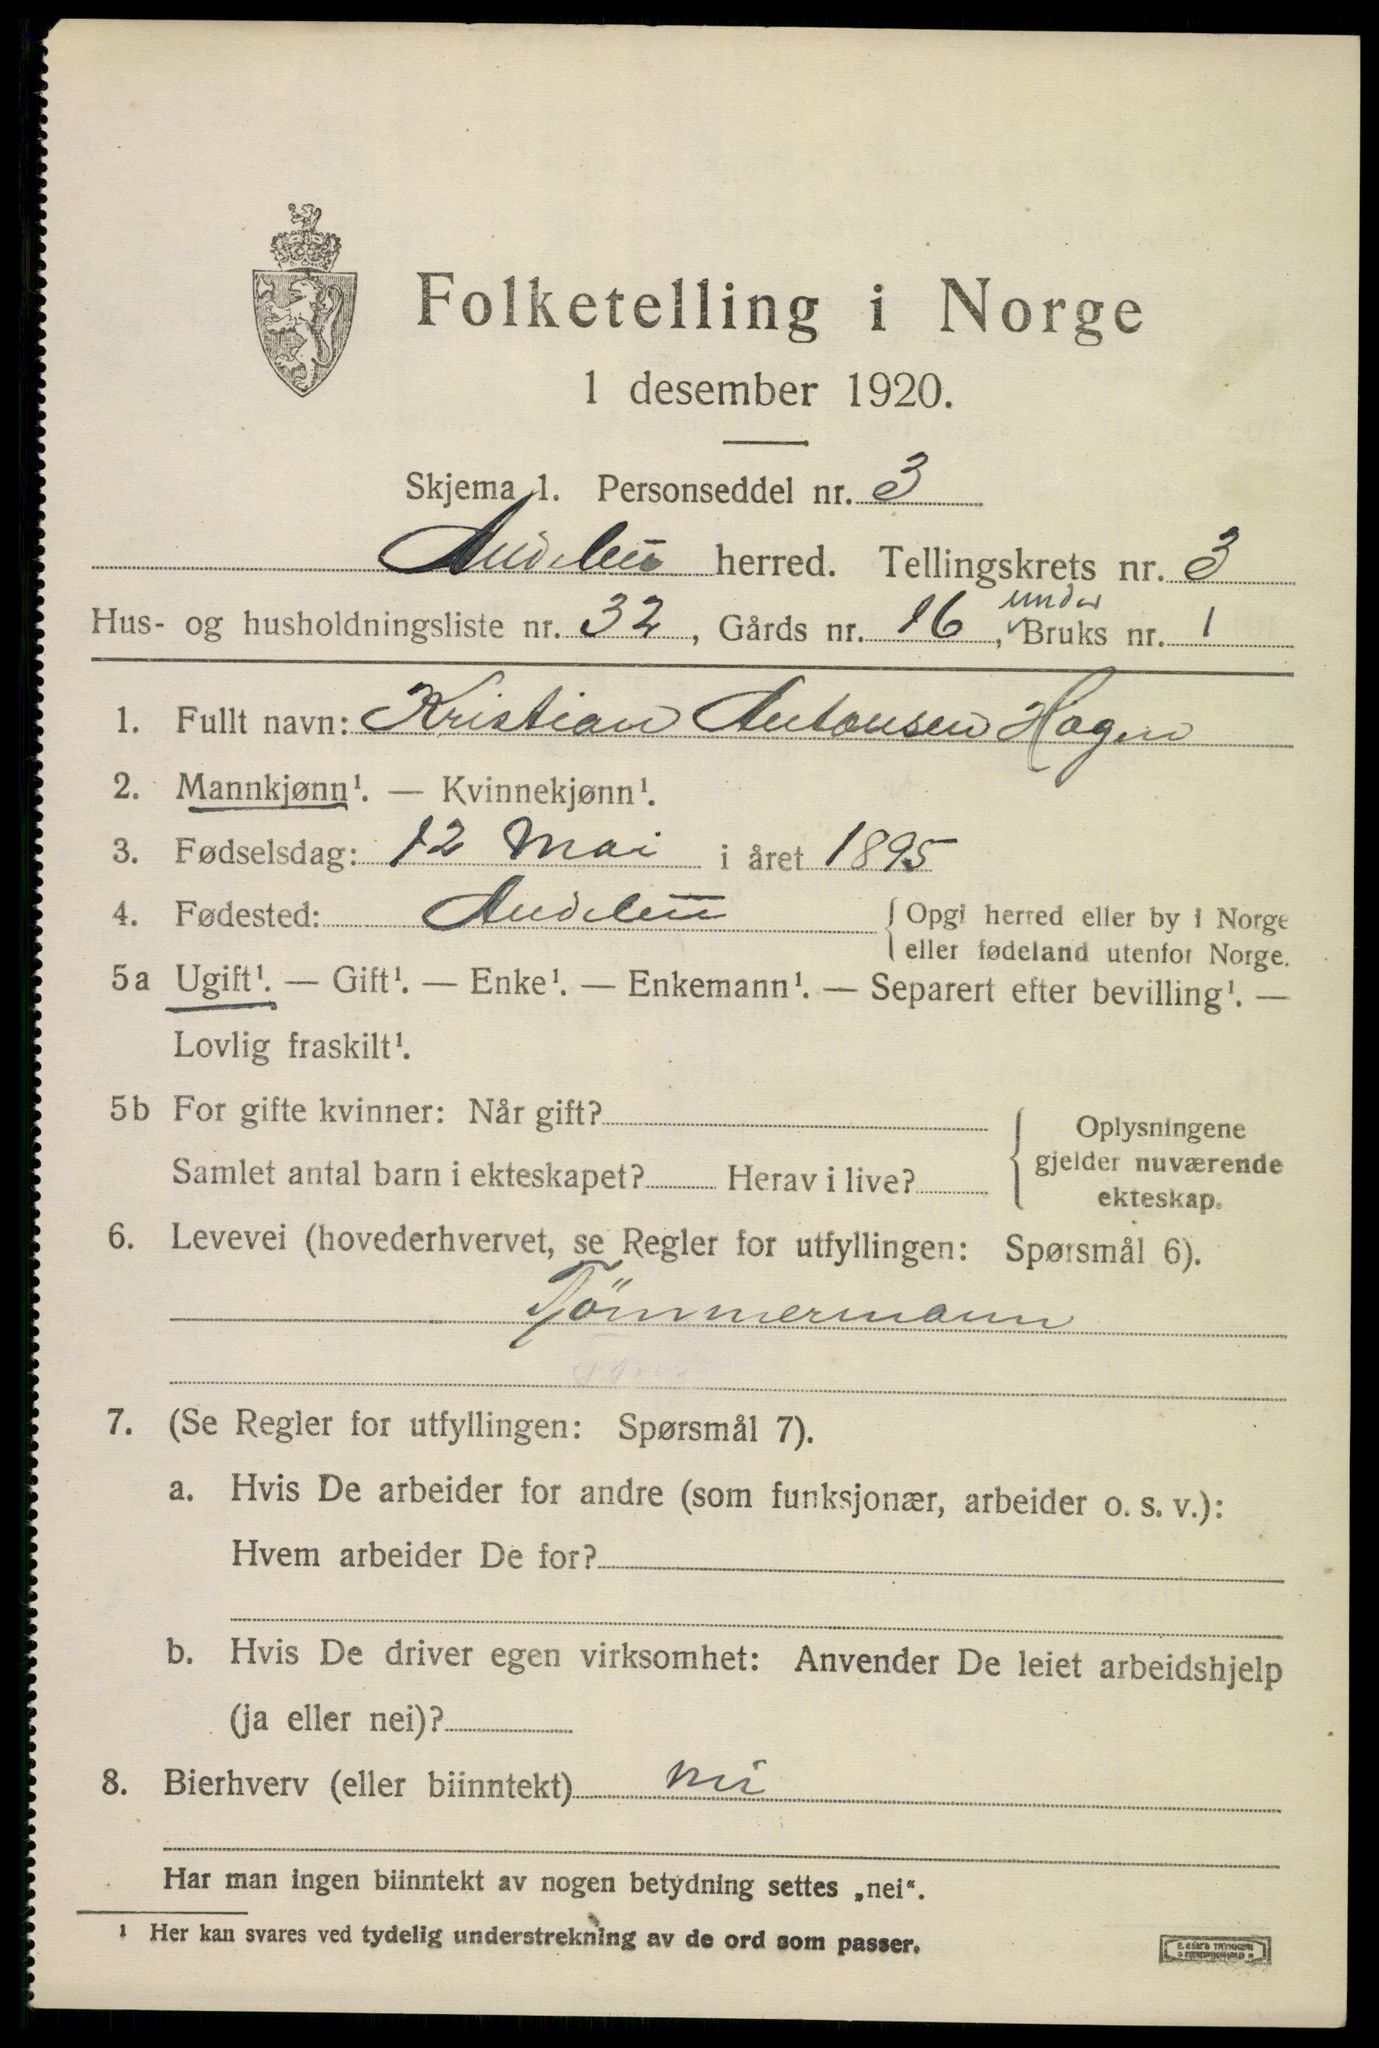 Folketelling i Norge
1 desember 1920.
Skjema 1. Personseddel nr. 3
Andebu herred. Tellingskrets nr. 3
under
Hus- og husholdningsliste nr. 32, Gårds nr. 16, Bruks nr. 1
1. Fullt navn: Kristian Antonsen Hagen
2. Mannkjønn¹. — Kvinnekjønn¹.
3. Fødselsdag: 12 Mai i året 1895
4. Fødested: Andebu {Opgi herred eller by i Norge
eller fødeland utenfor Norge.
5a Ugift¹. — Gift¹. — Enke¹. — Enkemann¹. — Separert efter bevilling¹. —
Lovlig fraskilt¹.
5b For gifte kvinner: Når gift?
Samlet antal barn i ekteskapet? Herav i live?
{Oplysningene
gjelder nuværende
ekteskap.
6. Levevei (hovederhvervet, se Regler for utfyllingen: Spørsmål 6).
Tömmermann
7. (Se Regler for utfyllingen: Spørsmål 7).
a. Hvis De arbeider for andre (som funksjonær, arbeider o. s. v.):
Hvem arbeider De for?
b. Hvis De driver egen virksomhet: Anvender De leiet arbeidshjelp
(ja eller nei)?
8. Bierhverv (eller biinntekt) nei
Har man ingen biinntekt av nogen betydning settes „nei“.
¹ Her kan svares ved tydelig understrekning av de ord som passer.